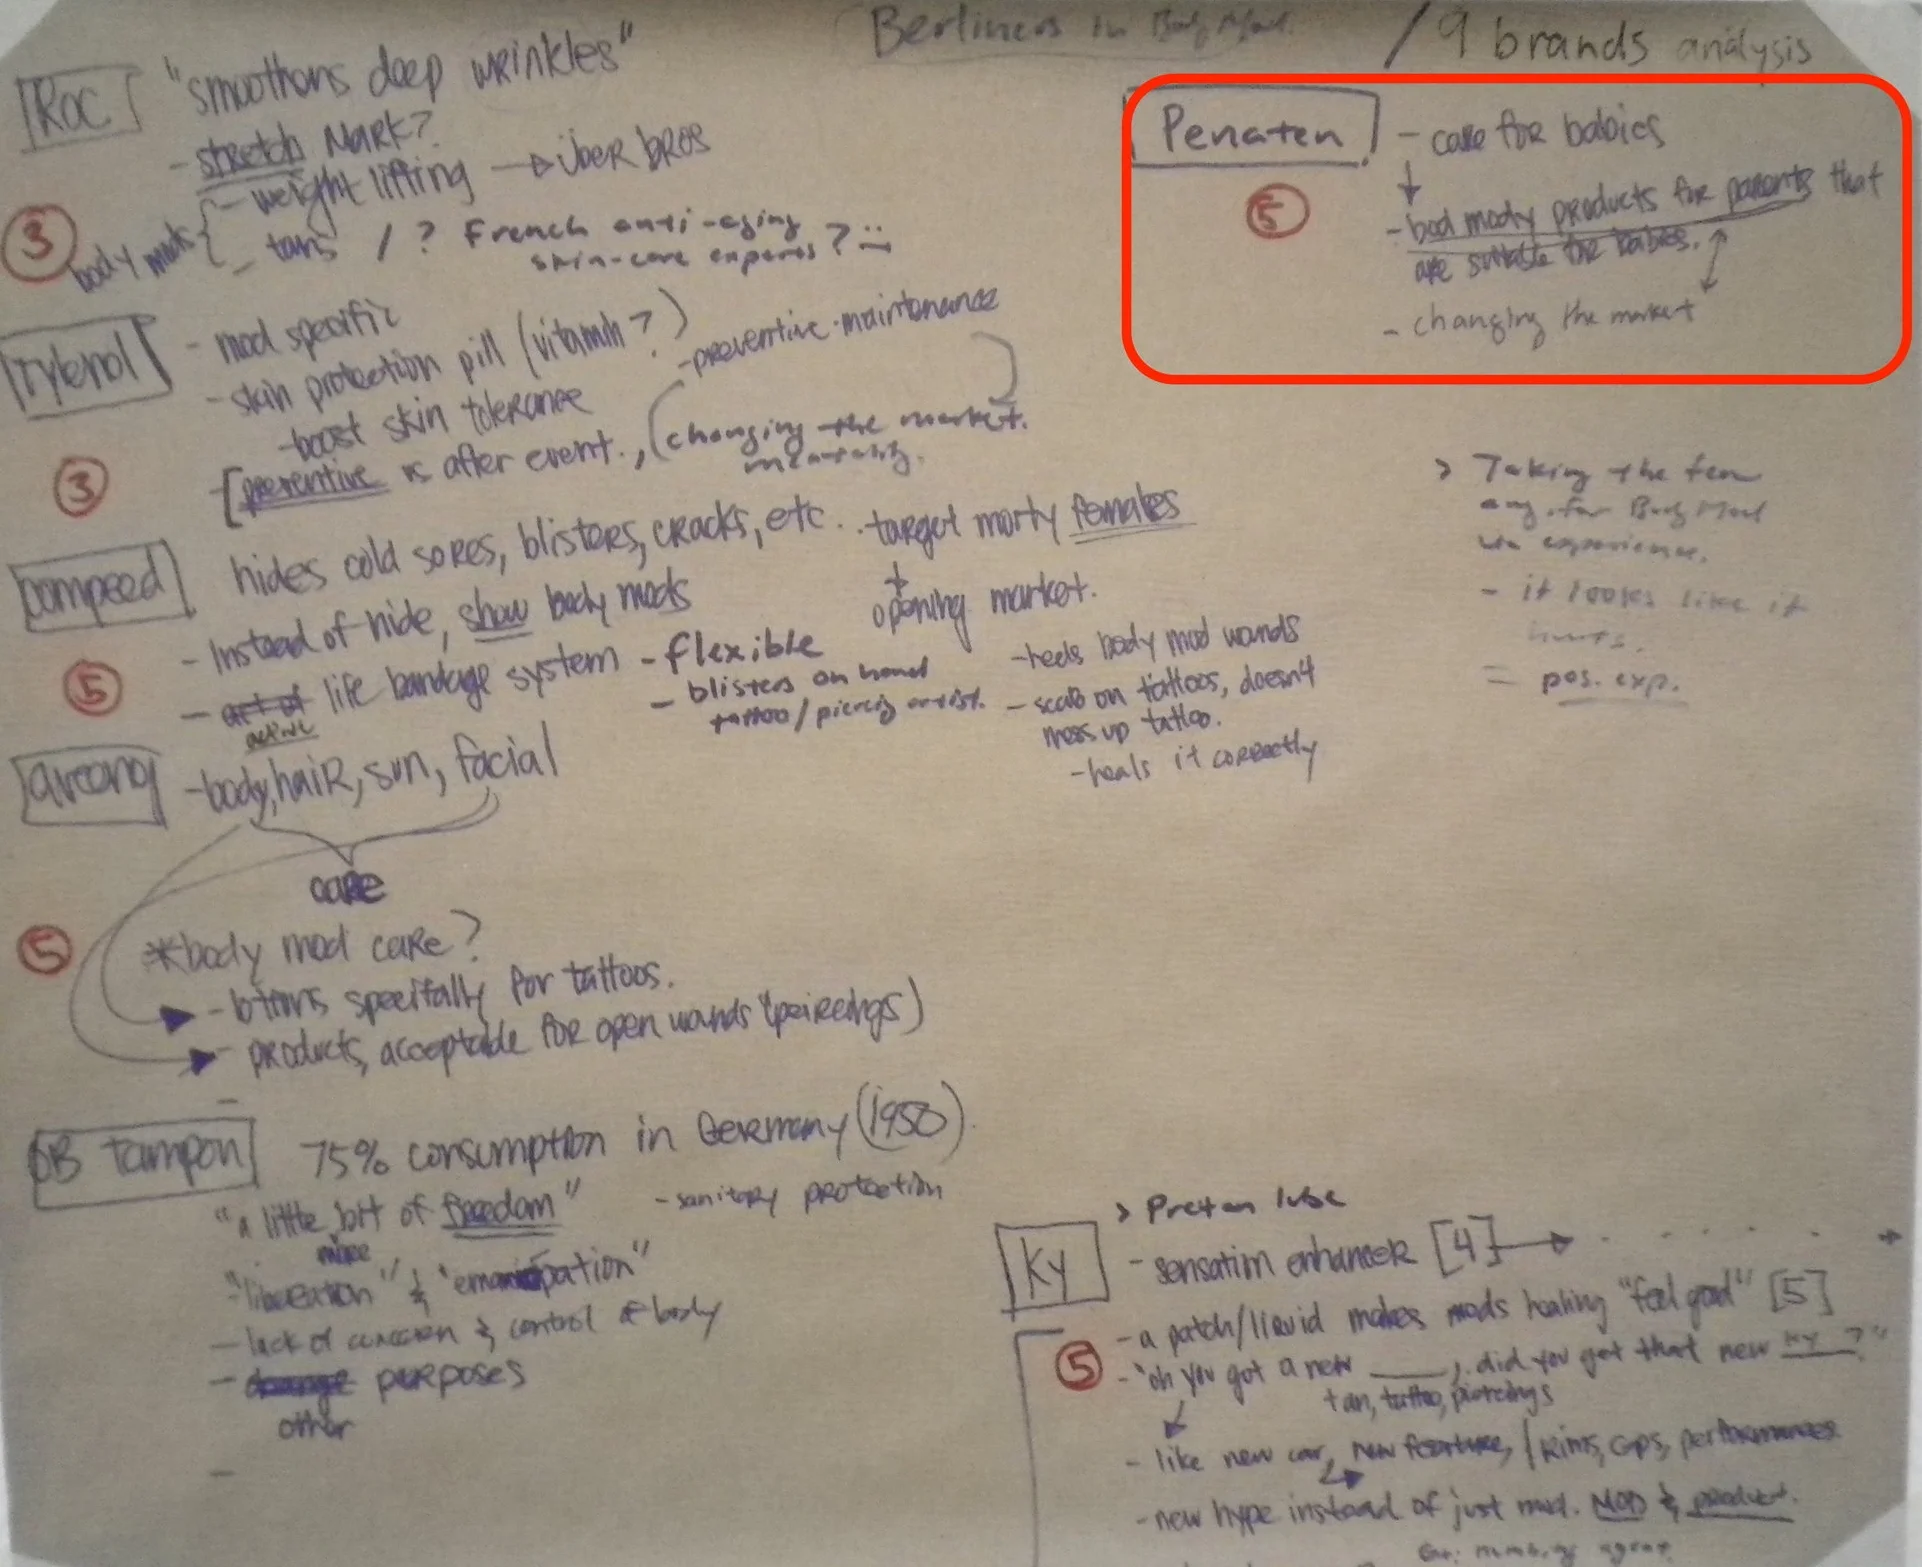 Berliners in Body Mod. / 9 brands analysis
ROC "smoothons deep wrinkles"
- stretch Mark?
③ body mods { - weight lifting → Über bros
- tans / ? French anti-aging
skin-care experts?
Tylenol - mod specific
- skin protection pill (vitamin?)
- preventive maintenance
- boost skin tolerance
③ [preventive is after event., (changing the market.
mentality.
Compeed hides cold sores, blisters, cracks, etc.
target morty females
↓
opening market.
- Instead of hide, show body mods
⑤ - act of life bandage system
active
- flexible
- blisters on hand
tattoo/piercing artist.
- heels body mod wands
- scab on tattoos, doesn't
mess up tattoo.
- heals it correctly
- body, hair, sun, facial
care
⑤ *body mod care?
- lotions specifally for tattoos.
- products, acceptable for open wands (peircings)
-
OB tampon 75% consumption in Germany (1950)
"a little bit of freedom" - sanitary protection
more
- "liberation" & "emancipation"
- lack of concern & control of body
- purposes
other
-
Penaten - care for babies
↓
⑤ - bod mody products for parents that
are suitable for babies.
- changing the market
> Taking the fear
away for Body Mod
experience.
- it looks like it
hurts.
= pos. exp.
> lube
KY - sensation enhancer [4] →
- a patch/liquid makes mods healing "feel good" [5]
⑤ - "oh you got a new ____, did you get that new KY?"
tan, tattoo, piercings
- like new car, new feature, / Rims, GPS, performances
- new hype instead of just mod. MOD & product.
numbing agent